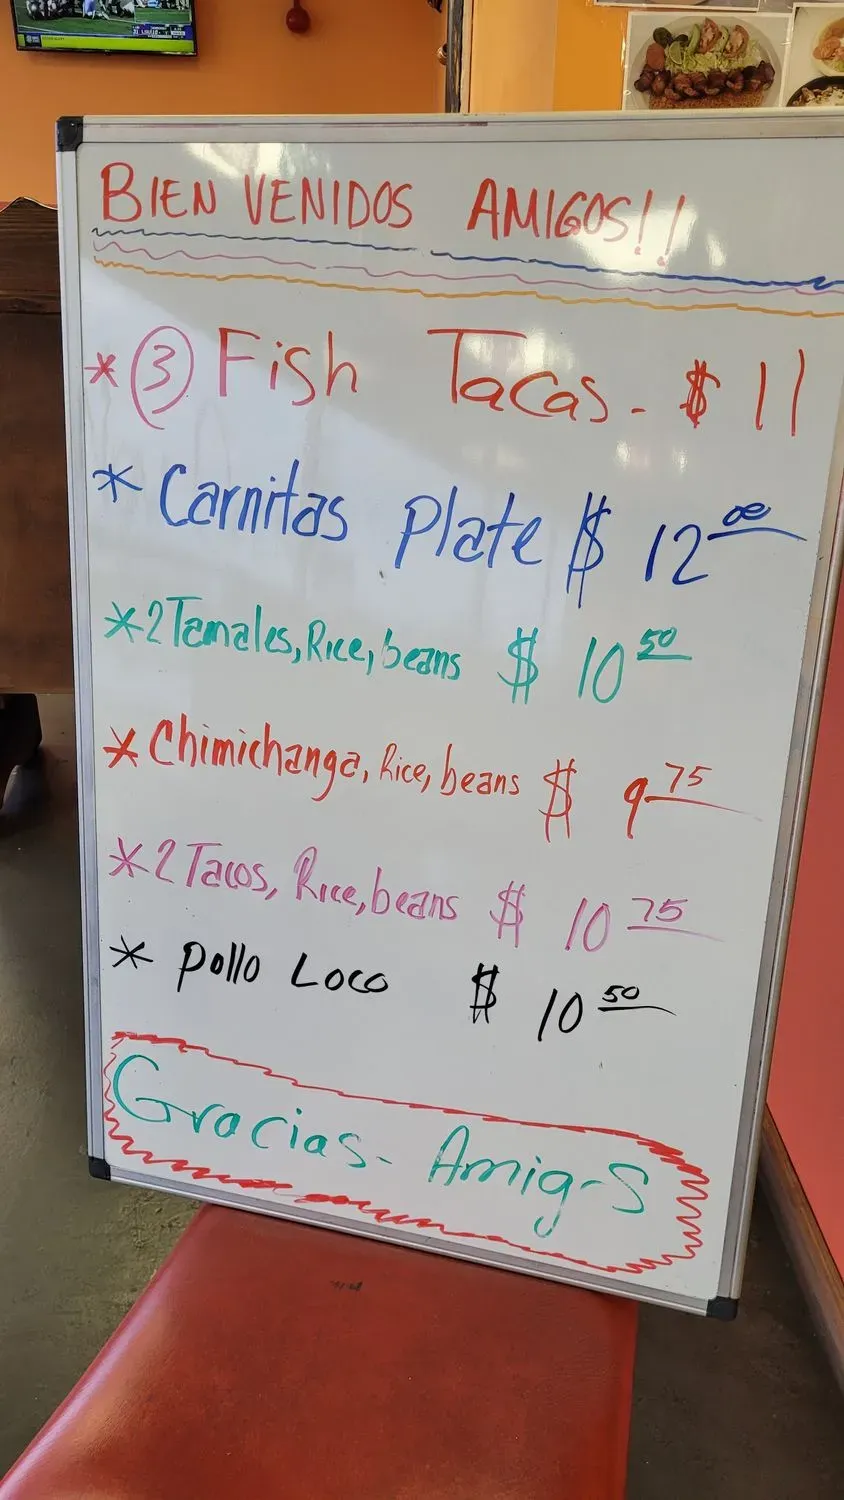 BIEN VENIDOS AMIGOS!!
* 3 Fish Tacas - $ 11
* Carnitas Plate $ 12 00
* 2 Tamales, Rice, beans $ 10 50
* Chimichanga, Rice, beans $ 9 75
* 2 Tacos, Rice, beans $ 10 75
* Pollo Loco $ 10 50
Gracias - Amig-s